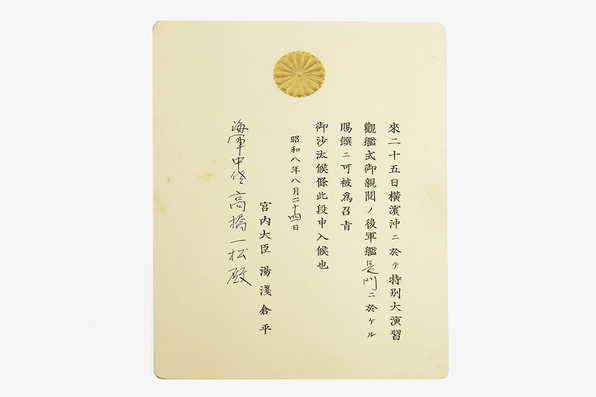 來二十五日橫濱沖ニ於テ特別大演習
觀艦式御親閲ノ後軍艦長門ニ於ケル
賜饌ニ可被爲召旨
御沙汰候條此段申入候也
昭和八年八月二十四日
宮内大臣 湯淺倉平
海軍中佐高橋一松殿